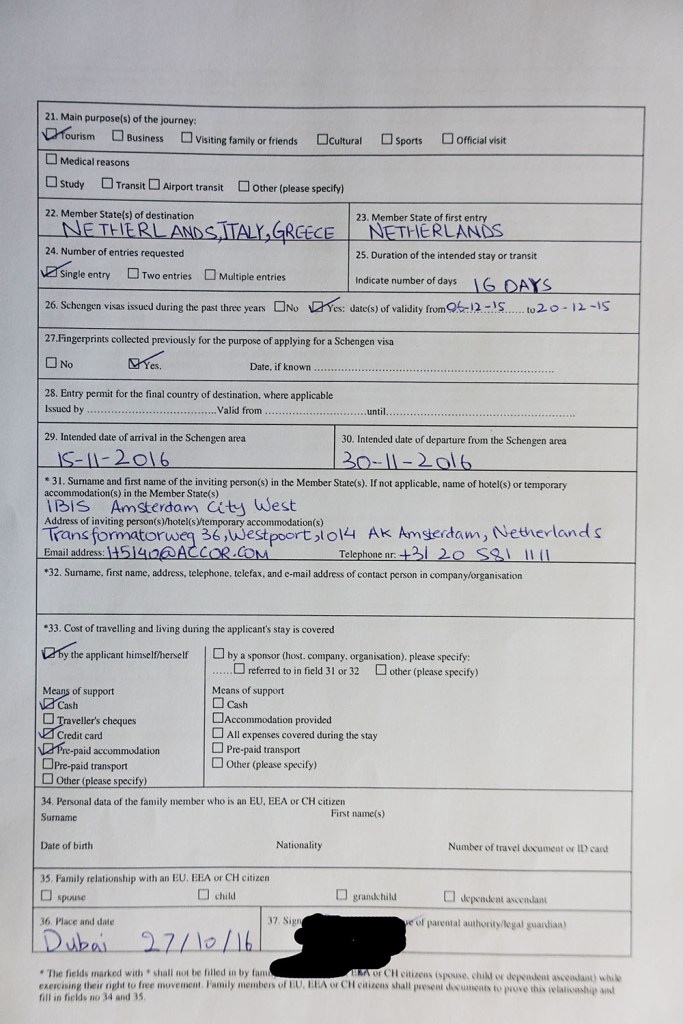 21. Main purpose(s) of the journey:
Tourism Business Visiting family or friends Cultural Sports Official visit
Medical reasons
Study Transit Airport transit Other (please specify)
22. Member State(s) of destination
NETHERLANDS, ITALY, GREECE
23. Member State of first entry
NETHERLANDS
24. Number of entries requested
Single entry Two entries Multiple entries
25. Duration of the intended stay or transit
Indicate number of days 16 DAYS
26. Schengen visas issued during the past three years No Yes: date(s) of validity from 06-12-15 ...... to 20-12-15
27.Fingerprints collected previously for the purpose of applying for a Schengen visa
No Yes. Date, if known ................................................................
28. Entry permit for the final country of destination, where applicable
Issued by ..................................Valid from ...........................until..................................................
29. Intended date of arrival in the Schengen area
15-11-2016
30. Intended date of departure from the Schengen area
30-11-2016
* 31. Surname and first name of the inviting person(s) in the Member State(s). If not applicable, name of hotel(s) or temporary
accommodation(s) in the Member State(s)
IBIS Amsterdam City West
Address of inviting person(s)/hotel(s)/temporary accommodation(s)
Transformatorweg 36, Westpoort, 1014 AK Amsterdam, Netherlands
Email address: H5140@ACCOR.COM Telephone nr: +31 20 581 1111
*32. Surname, first name, address, telephone, telefax, and e-mail address of contact person in company/organisation
*33. Cost of travelling and living during the applicant's stay is covered
by the applicant himself/herself
Means of support
Cash
Traveller's cheques
Credit card
Pre-paid accommodation
Pre-paid transport
Other (please specify)
by a sponsor (host, company, organisation), please specify:
...... referred to in field 31 or 32 other (please specify)
Means of support
Cash
Accommodation provided
All expenses covered during the stay
Pre-paid transport
Other (please specify)
34. Personal data of the family member who is an EU, EEA or CH citizen
Surname First name(s)
Date of birth Nationality Number of travel document or ID card
35. Family relationship with an EU, EEA or CH citizen
spouse child grandchild dependent ascendant
36. Place and date
Dubai 27/10/16
37. Sign of parental authority/legal guardian)
* The fields marked with * shall not be filled in by EEA or CH citizens (spouse, child or dependent ascendant) while
exercising their right to free movement. Family members of EU, EEA or CH citizens shall present documents to prove this relationship and
fill in fields no 34 and 35.